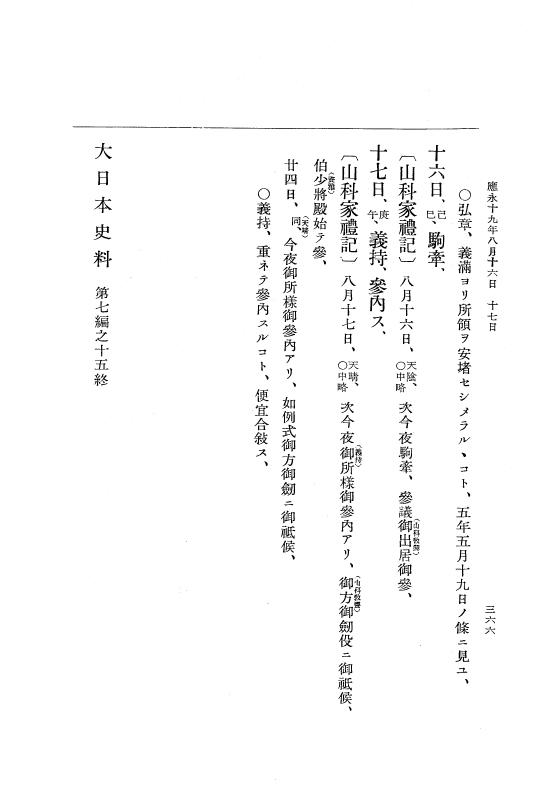 應永十九年八月十六日　十七日
三六六
○弘章、義滿ヨリ所領ヲ安堵セシメラルヽコト、五年五月十九日ノ條ニ見ユ、
十六日、己巳、駒牽、
〔山科家禮記〕八月十六日、天陰、○中略次今夜駒牽、參議御出居御參、
十七日、庚午、義持、參內ス、
〔山科家禮記〕八月十七日、天晴、○中略次今夜御所樣(義持)御參內アリ、御方御劒伇ニ御祗候、
伯少將殿始テ參、
廿四日、同、(天晴)今夜御所樣御參內アリ、如例式御方御劒ニ御祗候、
○義持、重ネテ參內スルコト、便宜合敍ス、
大日本史料　第七編之十五終